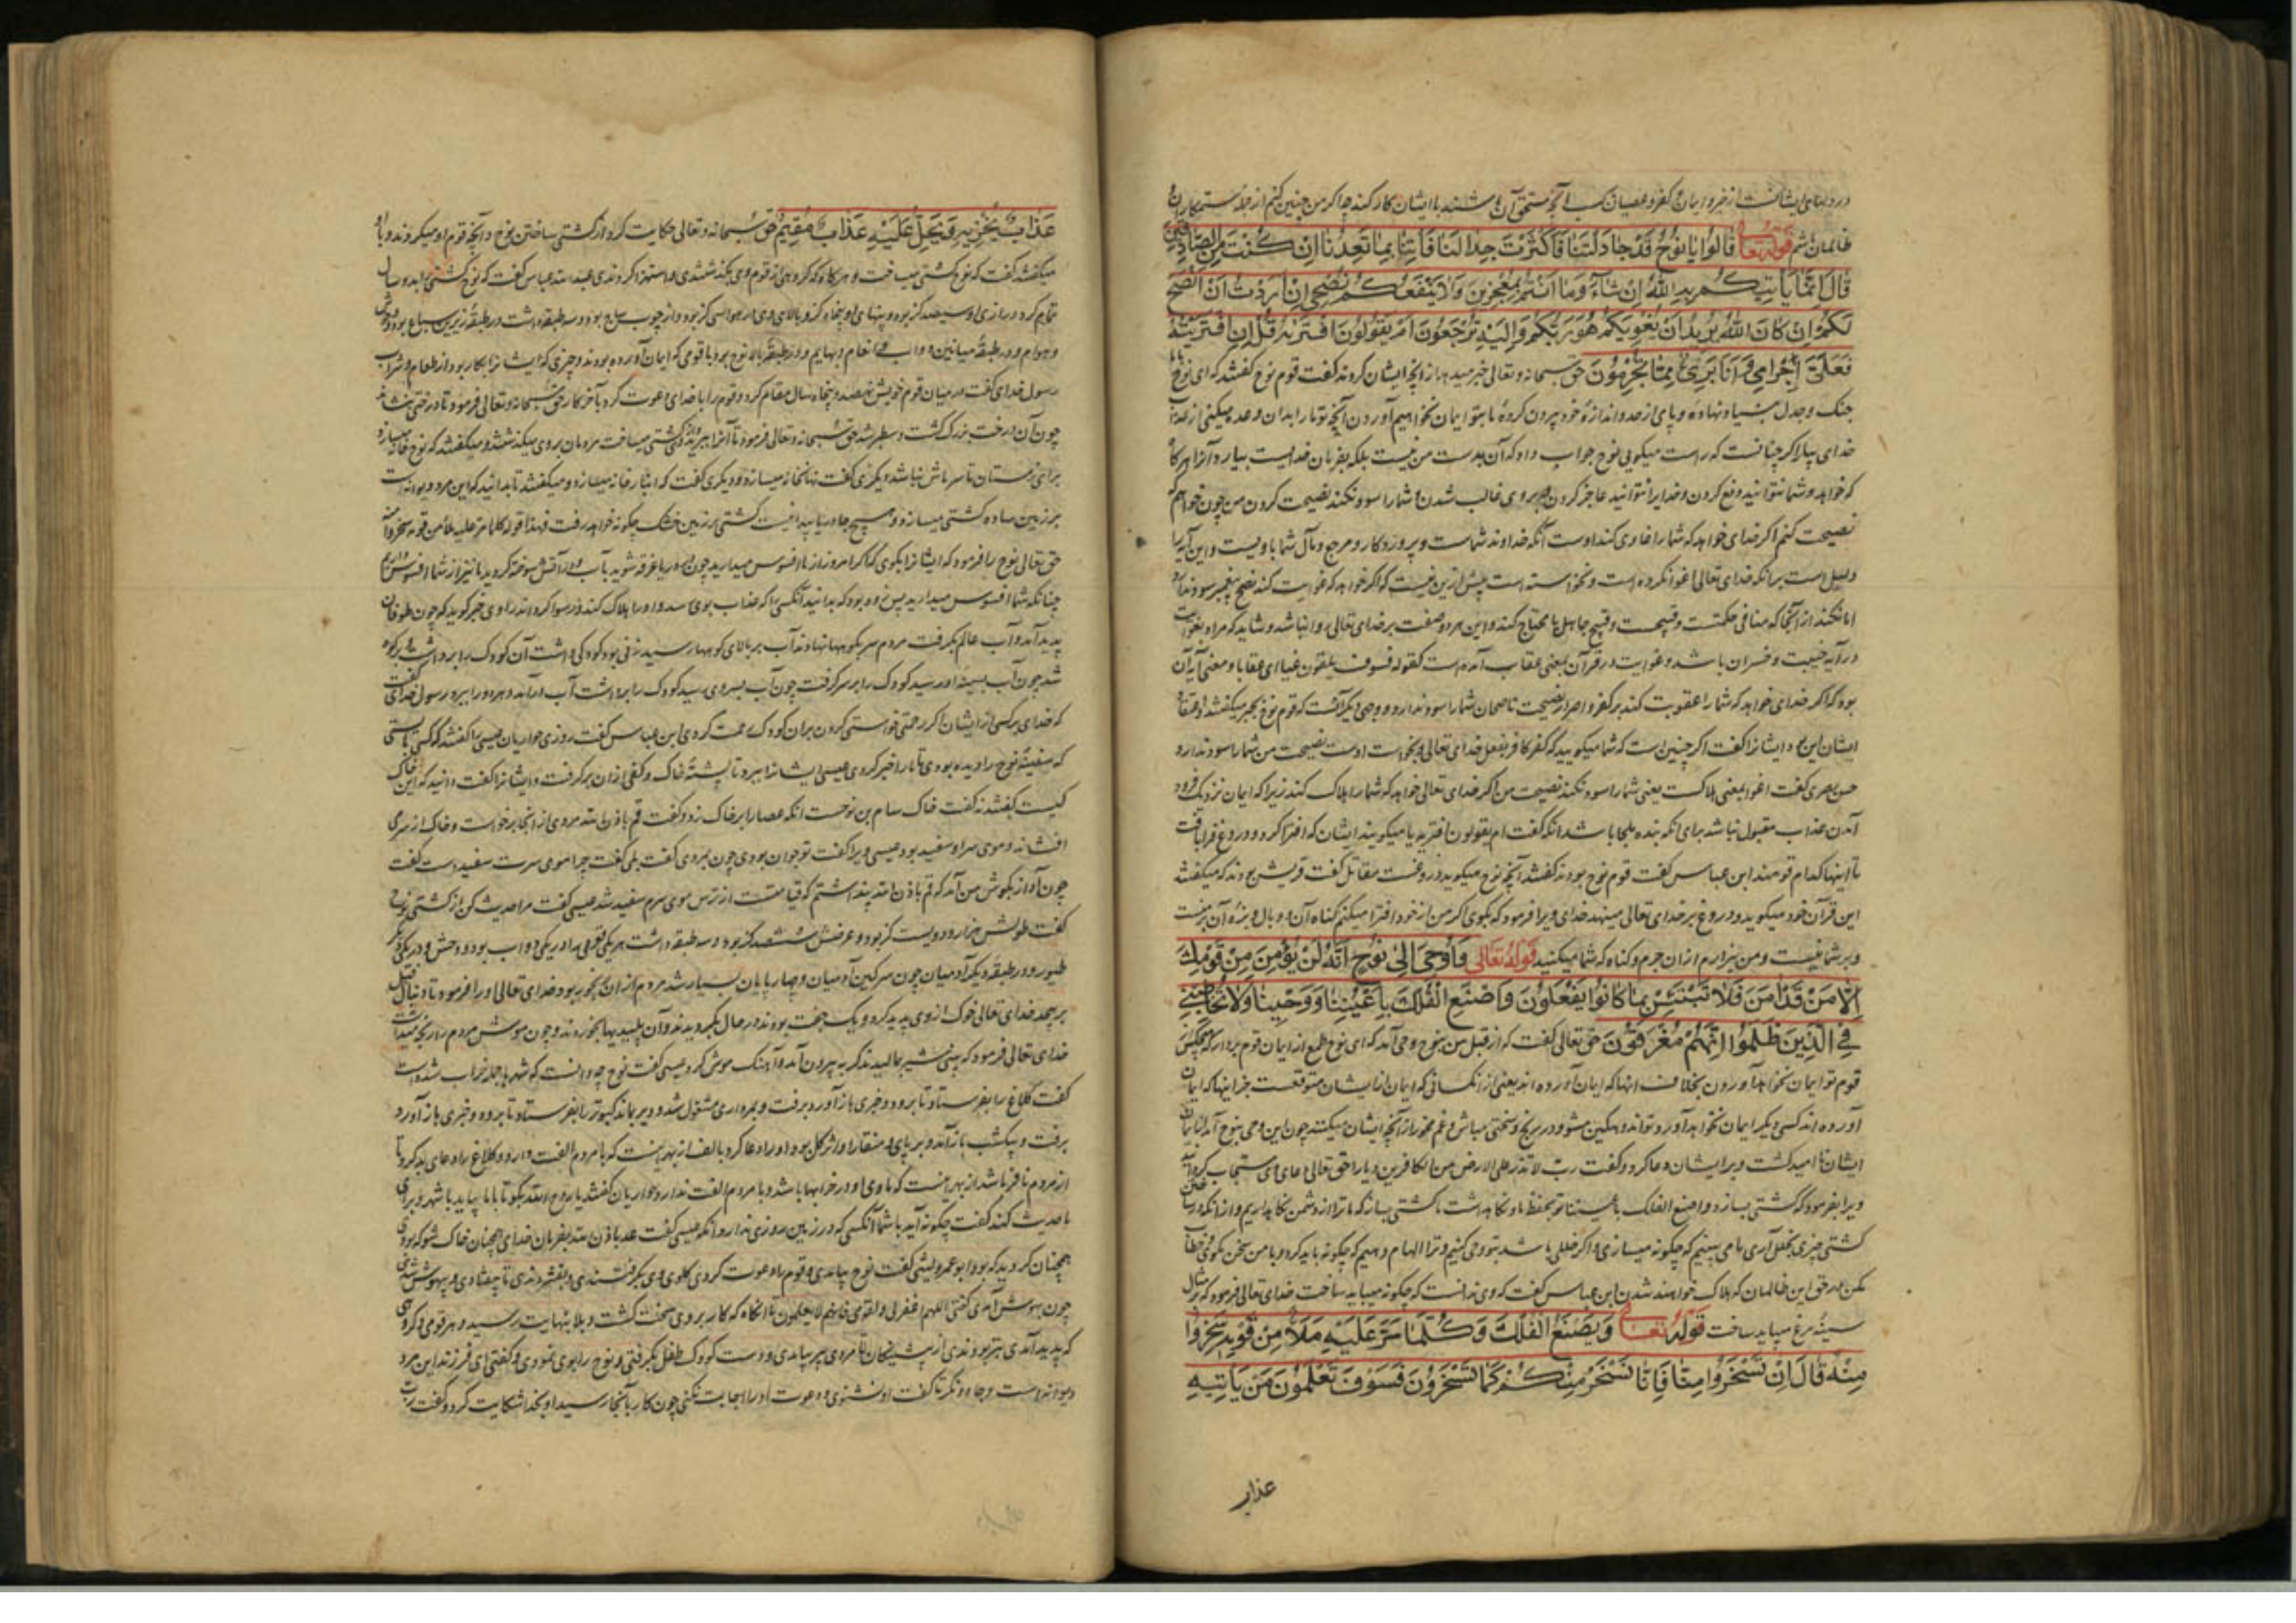 در دلهای ایشانست از خیر و ایمان و کفر و عصیان آنچه مستحق آن باشند با ایشان کار کند چه اگر من چنین کنم از جمله ستمکاران
ظالمان باشم قوله تعالی قَالُوا يَا نُوحُ قَدْ جَادَلْتَنَا فَأَكْثَرْتَ جِدَالَنَا فَأْتِنَا بِمَا تَعِدُنَا إِنْ كُنْتَ مِنَ الصَّادِقِينَ
قَالَ إِنَّمَا يَأْتِيكُمْ بِهِ اللَّهُ إِنْ شَاءَ وَمَا أَنْتُمْ بِمُعْجِزِينَ وَلَا يَنْفَعُكُمْ نُصْحِي إِنْ أَرَدْتُ أَنْ أَنْصَحَ
لَكُمْ إِنْ كَانَ اللَّهُ يُرِيدُ أَنْ يُغْوِيَكُمْ هُوَ رَبُّكُمْ وَإِلَيْهِ تُرْجَعُونَ أَمْ يَقُولُونَ افْتَرَيهُ قُلْ إِنِ افْتَرَيْتُهُ
فَعَلَيَّ إِجْرَامِي وَأَنَا بَرِيءٌ مِمَّا تُجْرِمُونَ حق سبحانه و تعالی خبر میدهد از آنچه ایشان کردند گفت قوم نوح گفتند که ای نوح با ما
جنگ و جدل بسیار نهاده و پای از حد و اندازه خود بیرون کرده ما بتو ایمان نخواهیم آوردن آنچه تو ما را بدان وعده میکنی از عذاب
خدای بیار اگر چنانست که راست میکویی نوح جواب داد که آن بدست من نیست بلکه بفرمان خدایست بیارد آنرا هرگاه
که خواهد و شما نتوانید دفع کردن و خدایرا نتوانید عاجز کردن و بر وی غالب شدن و شما را سود نکند نصیحت کردن من چون خواهم که
نصیحت کنم اگر خدای خواهد که شما را غاوی کند اوست آنکه خداوند شماست و پروردکار و مرجع و مآل شما با ویست و این آیه را
دلیل است بر آنکه خدای تعالی اغوا نکرده است و نخواسته است بیش ازین نیست که اگر خواهد که غوایت کند نصح پیغمبر سود ندارد
اما نکند از آنجا که منافی حکمتست و قبیحست و قبیح جاهل یا محتاج کند و این هر دو صفت بر خدای تعالی روا نباشد و شاید که مراد بغوایت
در آیه خیبت و خسران باشد و غوایت در قرآن بمعنی عقاب آمده است کقوله فسوف یلقون غیا ای عقابا و معنی آیه آن
بود که اگر خدای خواهد که شما را عقوبت کند بر کفر و اصرار نصیحت ناصحان شما را سود ندارد و وجهی دیگر آنست که قوم نوح بجبر میکفتند و اعتقاد
ایشان این بود ایشانرا گفت اگر چنین است که شما میکویید که کفر کافر بفعل خدای تعالی و بخواست اوست نصیحت من شما را سود ندارد
حسن بصری گفت اغوا بمعنی هلاکست یعنی شما را سود نکند نصیحت من اگر خدای تعالی خواهد که شما را هلاک کند زیرا که ایمان نزدیک فرود
آمدن عذاب مقبول نباشد برای آنکه بنده ملجا باشد آنکه گفت ام یقولون افتریه یا میکویند ایشان که افترا کرد و دروغ فرا بافت
تا اینها کدام قومند ابن عباس گفت قوم نوح بودند گفتند آنچه نوح میکوید دروغست مقاتل گفت قریش بودند که میکفتند
این قرآن خود میکوید و دروغ بر خدای تعالی مینهد خدای ویرا فرمود که بگوی اگر من از خود افترا میکنم گناه آن و وبال و بزه آن بر منست
و بر شما نیست و من بیزارم از آن جرم و گناه که شما میکنید قوله تعالی وَأُوحِيَ إِلَى نُوحٍ أَنَّهُ لَنْ يُؤْمِنَ مِنْ قَوْمِكَ
إِلَّا مَنْ قَدْ آمَنَ فَلَا تَبْتَئِسْ بِمَا كَانُوا يَفْعَلُونَ وَاصْنَعِ الْفُلْكَ بِأَعْيُنِنَا وَوَحْيِنَا وَلَا تُخَاطِبْنِي
فِي الَّذِينَ ظَلَمُوا إِنَّهُمْ مُغْرَقُونَ حق تعالی گفت که از قبل من بنوح وحی آمد که ای نوح طمع از ایمان قوم بردار که هیچکس
قوم تو ایمان نخواهد آوردن بخلاف آنها که ایمان آورده اند یعنی از آنکسانی که ایمان از ایشان متوقعست جز اینها که ایمان
آورده اند کسی دیگر ایمان نخواهد آورد تو اندوهگین مشو و در رنج و سختی مباش و غم مخور از آنچه ایشان میکنند چون این وحی بنوح آمد از ایمان
ایشان ناامید گشت و بر ایشان دعا کرد و گفت رب لا تذر علی الارض من الکافرین دیارا حق تعالی دعای او مستجاب کرد
ویرا بفرمود که کشتی بسازد واصنع الفلک باعیننا تو بحفظ ما و نگاهداشت ما کشتی بساز که ما ترا از دشمن نگاهداریم و از آنکه در ساختن
کشتی چیزی بخلل آری ما می بینیم که چگونه میسازی و اگر خللی باشد بتو وحی کنیم و ترا الهام دهیم که چگونه باید کرد و با من سخن مگوی و خطاب
مکن در حق این ظالمان که هلاک خواهند شدن ابن عباس گفت که وی ندانست که چگونه میباید ساخت خدای تعالی فرمود که بر مثال
سینه مرغ میباید ساخت قوله تعالی وَيَصْنَعُ الْفُلْكَ وَكُلَّمَا مَرَّ عَلَيْهِ مَلَأٌ مِنْ قَوْمِهِ سَخِرُوا
مِنْهُ قَالَ إِنْ تَسْخَرُوا مِنَّا فَإِنَّا نَسْخَرُ مِنْكُمْ كَمَا تَسْخَرُونَ فَسَوْفَ تَعْلَمُونَ مَنْ يَأْتِيهِ
عذاب
عَذَابٌ يُخْزِيهِ وَيَحِلُّ عَلَيْهِ عَذَابٌ مُقِيمٌ حق سبحانه و تعالی حکایت کرد از کشتی ساختن نوح و آنچه قوم او میکردند و با او
میگفتند گفت که نوح کشتی میساخت و هر گاه که گروهی از قوم وی بگذشتندی و استهزا کردندی عبدالله عباس گفت که نوح کشتی را بدو سال
تمام کرد درازی او سیصد گز بود و پنهای او پنجاه گز و بالای وی در هوا سی گز بود و از چوب ساج بود و سه طبقه داشت در طبقه زیرین سباع بود و وحوش
و هوام و در طبقه میانین دواب و انعام و بهایم و در طبقه بالا نوح بود با قومی که ایمان آورده بودند و چیزی که ایشانرا بکار بود از طعام و شراب
رسول خدای گفت در میان قوم خویش نهصد و پنجاه سال مقام کرد و قوم را با خدای دعوت کرد بآخر کار حق سبحانه و تعالی فرمود تا درختی بنشاند
چون آن درخت بزرگ گشت و سطبر شد حق سبحانه و تعالی فرمود تا آنرا ببرید و کشتی میساخت مردمان بر وی میگذشتند و میگفتند که نوح خانه میسازد
برای زمستان تا سرماش نباشد دیگری گفت نهانخانه میسازد و دیگری گفت که انبار خانه میسازد و میگفتند تا بدانید که این مرد دیوانه است
بر زمین ساده کشتی میسازد و هیچ جا دریا پیدا نیست کشتی بر زمین خشک چگونه خواهد رفت فهذا قوله کلما مر علیه ملأ من قومه سخروا منه
حق تعالی نوح را فرمود که ایشانرا بگوی که اگر امروز از ما افسوس میدارید چون در دریا غرقه شوید بآب و در آتش سوخته گردید ما نیز از شما افسوس داریم
چنانکه شما افسوس میدارید پس زود بود که بدانید آنکسی را که عذاب بوی رسد و او را هلاک کند و رسوا گرداند راوی خبر گوید که چون طوفان
پدید آمد و آب عالم بگرفت مردم سر بکوهها نهادند آب بر بالای کوهها رسید زنی بود کودکی داشت آن کودک را برداشت و بر کوه
شد چون آب بسینه او رسید کودک را بر سر گرفت چون آب بسر وی رسید کودک را برداشت آب درآمد و هر دو را ببرد رسول خدای گفت
که خدای بر کسی از ایشان اگر رحمتی خواستی کردن بر آن کودک رحمت کردی ابن عباس گفت روزی حواریان عیسی را گفتند که کسی بایستی
که سفینه نوح را دیده بودی تا ما را خبر کردی عیسی ایشانرا ببرد تا پشته خاک و کفی از آن برگرفت و ایشانرا گفت دانید که این خاک
کیست گفتند نه گفت خاک سام بن نوحست آنکه عصا را بر خاک زد و گفت قم باذن الله مردی از آنجا برخاست و خاک از سر می
افشاند و موی سر او سفید بود عیسی ویرا گفت تو جوان بودی چون بمردی گفت بلی گفت چرا موی سرت سفید است گفت
چون آواز بگوش من آمد که قم باذن الله پنداشتم که قیامتست از ترس موی سرم سفید شد عیسی گفت ما را حدیث کن از کشتی نوح
گفت طولش هزار و دویست گز بود و عرضش ششصد گز بود و سه طبقه داشت در یکی دواب بود و وحش و در یکی دیگر
طیور و در طبقه دیگر آدمیان چون سرگین آدمیان و چهارپایان بسیار شد مردم از آن رنجور بود خدای تعالی او را فرمود تا دنبال فیل
بر پیچد خدای تعالی خوک از وی پدید کرد و یک جفت بودند در حال بگردیدند و آن پلیدیها بخوردند و چون موش مردم را رنجه میداشت
خدای تعالی فرمود که بینی شیر بمالید تا گربه بیرون آمد و آهنگ موش کرد عیسی گفت نوح چه دانست که شهرها جمله خراب شده است
گفت کلاغ را بفرستاد تا برود و خبری باز آورد برفت و بمرداری مشغول شد و دیر بماند کبوتر را بفرستاد تا برود و خبری باز آورد
برفت و یکشب باز آمد و بر پای و منقار او اثر گل بود او را دعا کرد بالف از بهر اینست که با مردم الفت دارد و کلاغ را دعای بد کرد تا
از مردم نافر باشد از بهر اینست که ماوی او در خرابها باشد و با مردم الفت ندارد حواریان گفتند یا روح الله بگو تا با ما بیاید با شهر و برای
ما حدیث کند گفت چگونه آید با شما آنکسی که در زمین روزی ندارد آنکه عیسی گفت عد باذن الله بفرمان خدای همچنان خاک شو که بودی
همچنان گردید که بود ابو عمرو لیثی گفت نوح بیامدی و قوم را دعوت کردی گلوی وی بگرفتندی و بفشردندی تا بیفتادی و بیهوش شدی
چون بهوش آمدی گفتی اللهم اغفر لی و لقومی فانهم لا یعلمون تا آنگاه که کار بر وی سخت گشت و بلا بنهایت رسید و هر قومی و گروهی
که پدید آمدی بتر بودندی از پیشینگان تا مردی پیر بیامدی و دست کودک طفل بگرفتی و نوح را بوی نمودی و گفتی ای فرزند این مرد
دیوانه است و جادو نگر تا گفت او نشنوی و دعوت او را اجابت نکنی چون کار بآنجا رسید او بخدا شکایت کرد و گفت رب